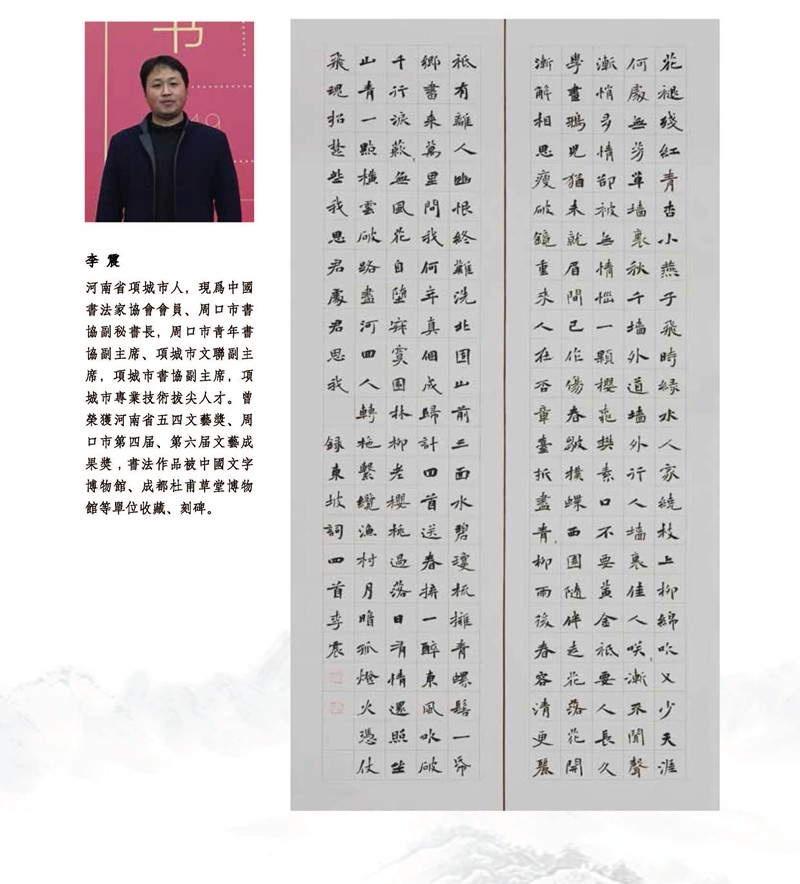 书
19
李震
河南省項城市人，現爲中國
書法家協會會員、周口市書
協副秘書長，周口市青年書
協副主席、項城市文聯副主
席，項城市書協副主席，項
城市專業技術拔尖人才。曾
榮獲河南省五四文藝獎、周
口市第四届、第六届文藝成
果獎，書法作品被中國文字
博物館、成都杜甫草堂博物
館等單位收藏、刻碑。
花褪残紅青杏小燕子飛時緑水人家繞枝上柳綿吹又少天涯
何處無芳草墻裏秋千墻外道墻外行人墻裏佳人咲漸不聞聲
漸悄多情卻被無情惱一顆櫻桃樊素口不要黃金祇要人長久
學畫鴉兒猶未就眉間已作傷春皺撲蝶西園隨伴走花落花開
漸解相思瘦破鏡重來人在否章臺折盡青柳雨後春容清更麗
祇有離人幽恨終難洗北固山前三面水碧瓊梳擁青螺髻一帋
鄉書來萬里問我何年真個成歸計囬首送春拚一醉東風吹破
千行淚蔌無風花自墮寂寞園林柳老櫻桃過落日有情還照坐
山青一點橫雲破路盡河囬人轉柂繫纜漁村月暗孤燈火憑仗
飛魂招楚些我思君處君思我
録東坡詞四首李震